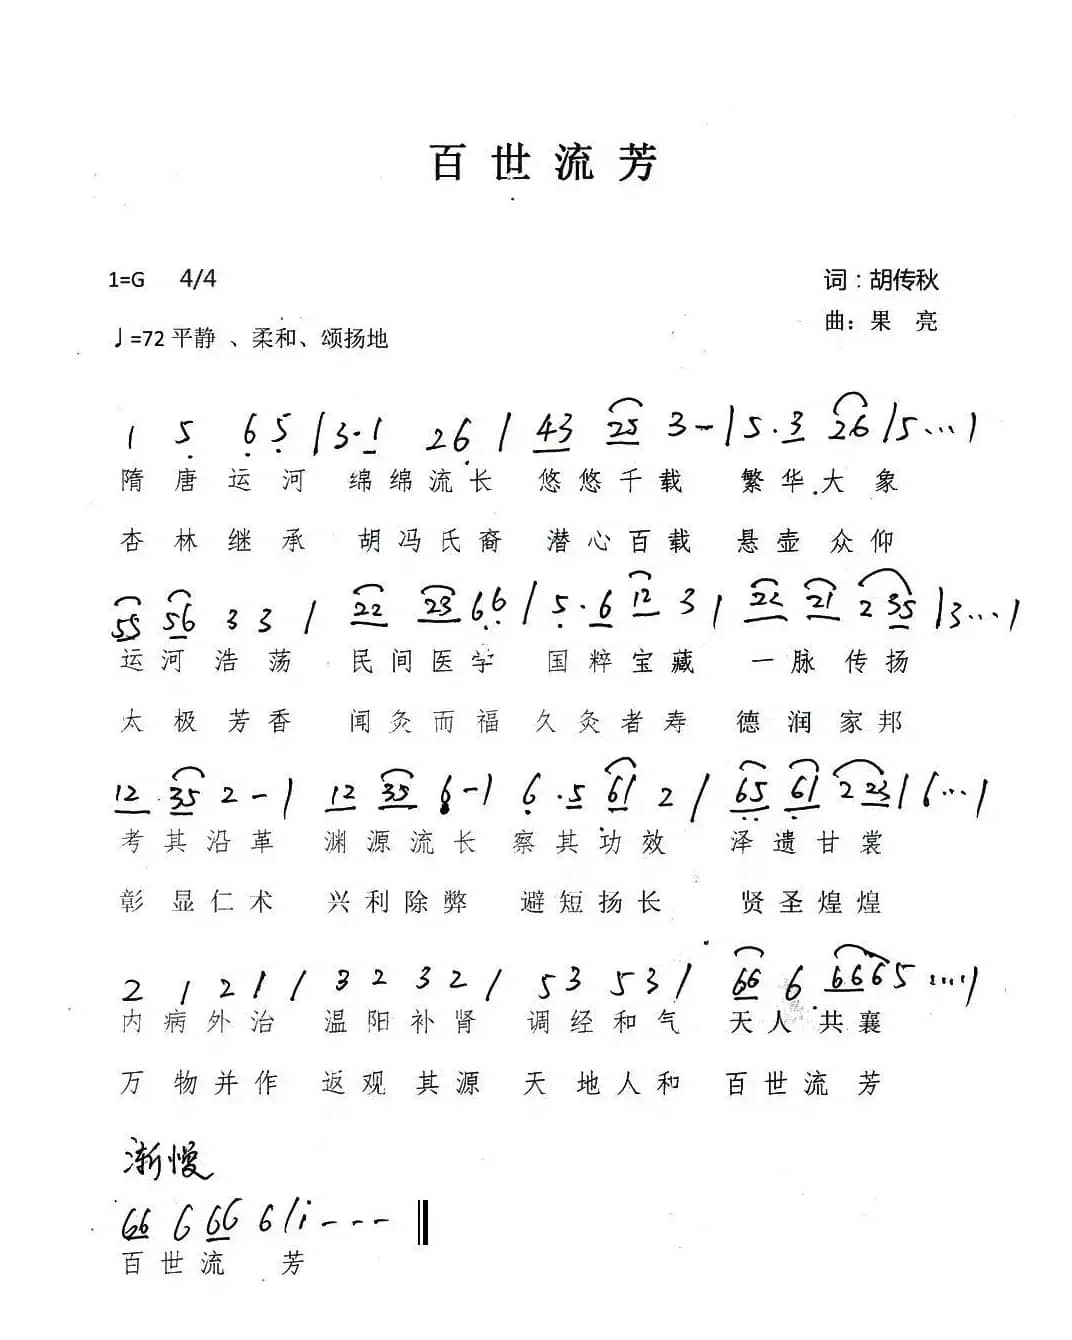 百世流芳
1=G 4/4 词：胡传秋
♩=72 平静 、柔和、颂扬地 曲：果 亮
1 5 6 5 | 3·1 26 | 43 25 3- | 5·3 26 | 5··· |
隋唐运河 绵绵流长 悠悠千载 繁华大象
杏林继承 胡冯氏裔 潜心百载 悬壶众仰
55 56 3 3 | 22 23 66 | 5·6 12 3 | 22 21 2 35 | 3··· |
运河浩荡 民间医学 国粹宝藏 一脉传扬
太极芳香 闻灸而福 久灸者寿 德润家邦
12 35 2- | 12 35 6- | 6·5 61 2 | 65 61 2 23 | 6··· |
考其沿革 渊源流长 察其功效 泽遗甘裳
彰显仁术 兴利除弊 避短扬长 贤圣煌煌
2 1 2 1 | 3 2 3 2 | 53 53 | 66 6 6665 ···· |
内病外治 温阳补肾 调经和气 天人共襄
万物并作 返观其源 天地人和 百世流芳
渐慢
66 6 66 6 | i - - -
百世流 芳